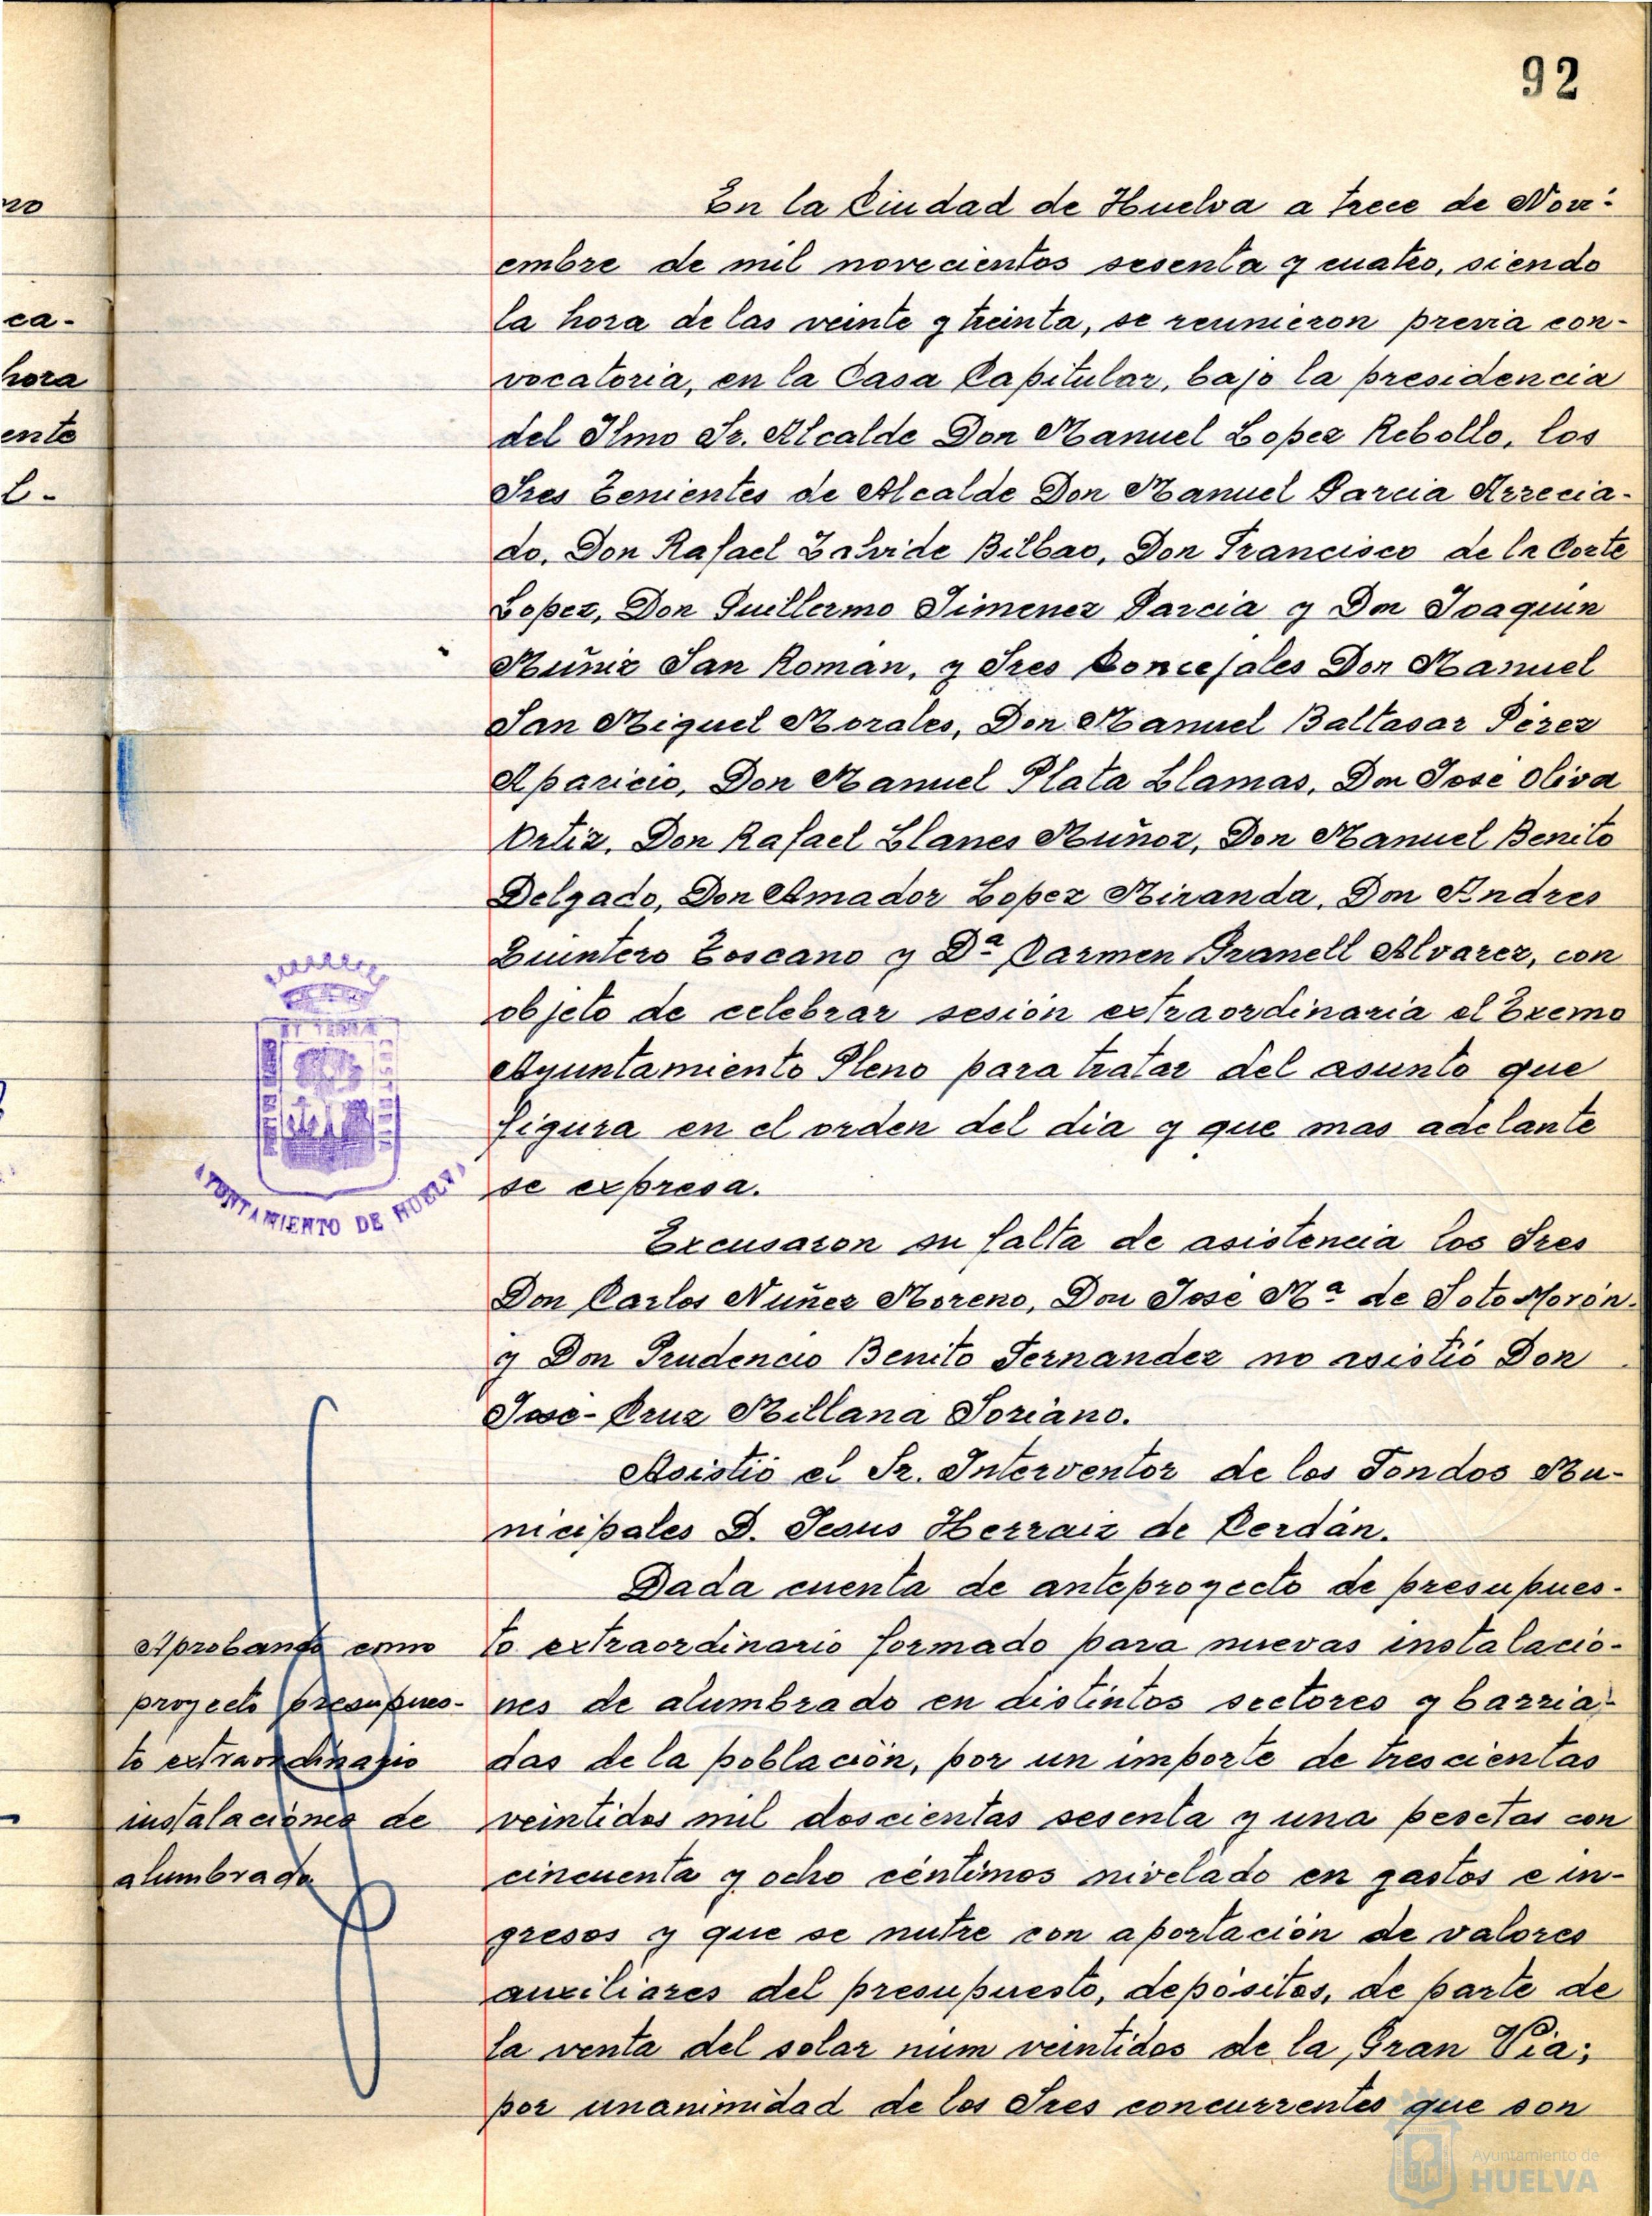 92
no
ca-
hora
ente
l-
En la Ciudad de Huelva a trece de Novi-
embre de mil novecientos sesenta y cuatro, siendo
la hora de las veinte y treinta, se reunieron previa con-
vocatoria, en la Casa Capitular, bajo la presidencia
del Ilmo Sr. Alcalde Don Manuel Lopez Rebollo, los
Sres Tenientes de Alcalde Don Manuel Garcia Arrecia-
do, Don Rafael Zalvide Bilbao, Don Francisco de la Corte
Lopez, Don Guillermo Jimenez Garcia y Don Joaquin
Muñiz San Roman, y Sres Concejales Don Manuel
San Miguel Morales, Don Manuel Baltasar Pérez
Aparicio, Don Manuel Plata Llamas, Don Jose Oliva
Ortiz, Don Rafael Llanes Muñoz, Don Manuel Benito
Delgado, Don Amador Lopez Miranda, Don Andres
Quintero Toscano y Dª Carmen Granell Alvarez, con
objeto de celebrar sesión extraordinaria el Excmo
Ayuntamiento Pleno para tratar del asunto que
figura en el orden del dia y que mas adelante
se expresa.
AYUNTAMIENTO DE HUELVA
Excusaron su falta de asistencia los Sres
Don Carlos Nuñez Moreno, Don Jose Mª de Soto Morón.
y Don Prudencio Benito Fernandez no asistió Don
José-Cruz Millana Soriano.
Asistió el Sr. Interventor de los Fondos Mu-
nicipales D. Jesus Herraiz de Cerdán.
Dada cuenta de anteproyecto de presupues-
to extraordinario formado para nuevas instalacio-
nes de alumbrado en distintos sectores y barria-
das de la población, por un importe de trescientas
veintidos mil doscientas sesenta y una pesetas con
cincuenta y ocho céntimos nivelado en gastos e in-
gresos y que se nutre con aportación de valores
auxiliares del presupuesto, depósitos, de parte de
la venta del solar núm veintidos de la Gran Via;
por unanimidad de los Sres concurrentes que son
Aprobando como
proyecto presupues-
to extraordinario
instalaciones de
alumbrado.
Ayuntamiento de
HUELVA